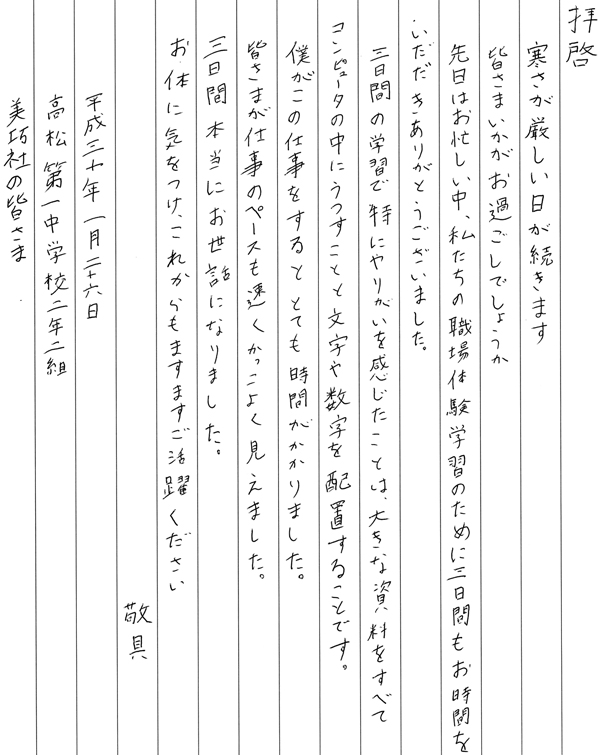 拝啓
寒さが厳しい日が続きます
皆さまいかがお過ごしでしょうか
先日はお忙しい中、私たちの職場体験学習のために三日間もお時間を
いただきありがとうございました。
三日間の学習で特にやりがいを感じたことは、大きな資料をすべて
コンピュータの中にうつすことと文字や数字を配置することです。
僕がこの仕事をするととても時間がかかりました。
皆さまが仕事のペースも速くかっこよく見えました。
三日間本当にお世話になりました。
お体に気をつけ、これからもますますご活躍ください
敬具
平成三十年一月二十六日
高松第一中学校二年二組
美巧社の皆さま